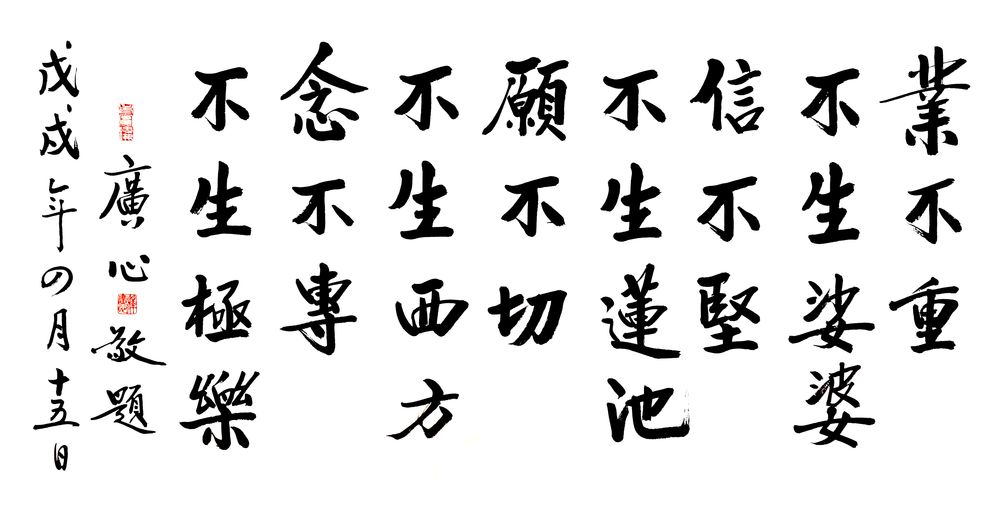 業不重
不生娑婆
信不堅
不生蓮池
願不切
不生西方
念不專
不生極樂
廣心敬題
戊戌年四月十五日